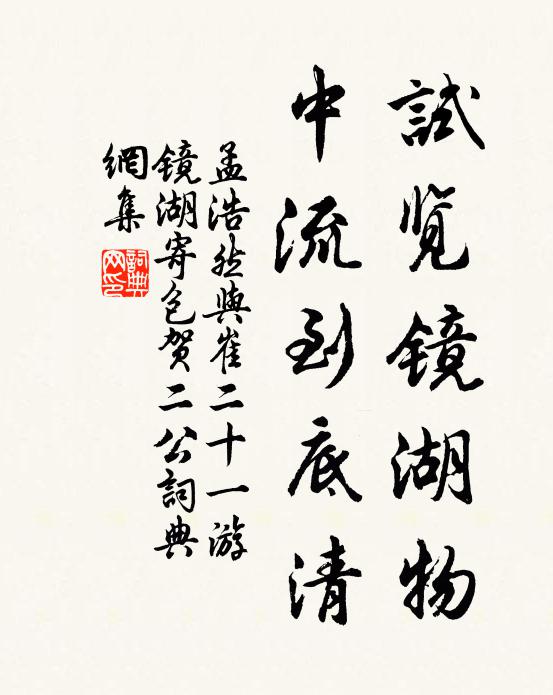 試览镜湖物
中流到底清
孟浩然與崔二十一游
镜湖寄包贺二公詞典
網集
詞典
网印